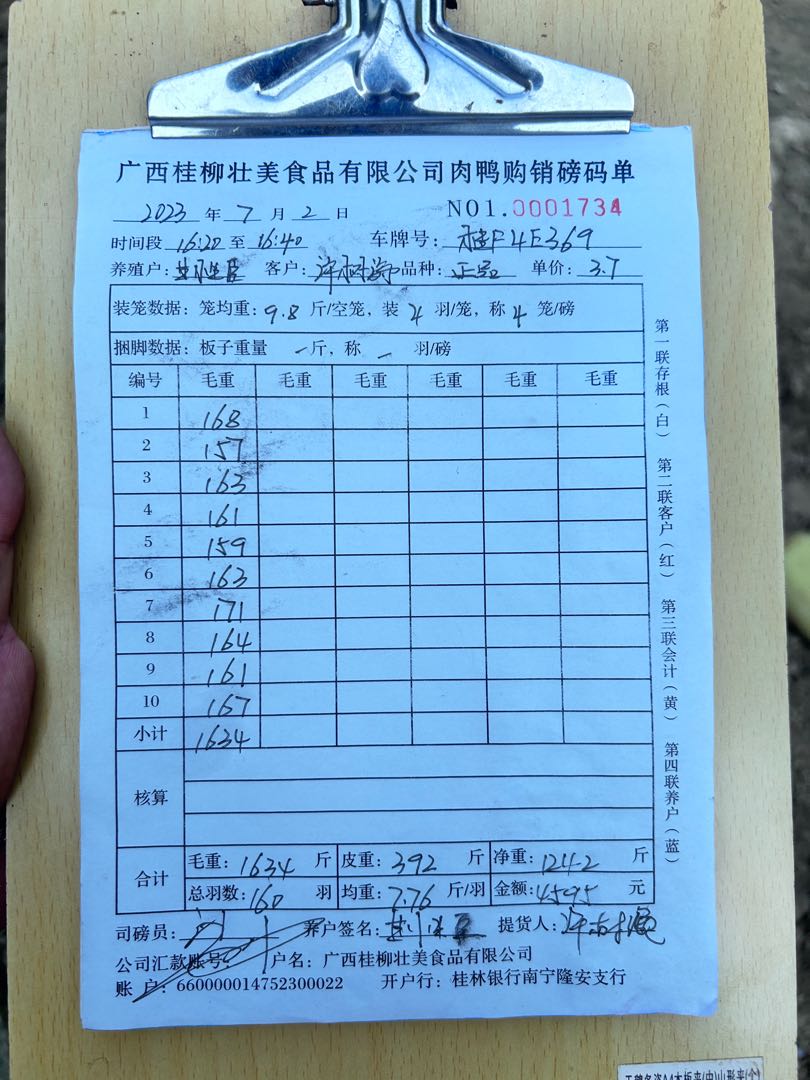 广西桂柳壮美食品有限公司肉鸭购销磅码单
2023 年 7 月 2 日 NO1.0001734
时间段 16:20 至 16:40 车牌号: 桂F4E369
养殖户: 客户: 品种: 正品 单价: 3.7
装笼数据: 笼均重: 9.8 斤/空笼, 装 4 羽/笼, 称 4 笼/磅
捆脚数据: 板子重量 - 斤, 称 - 羽/磅
编号 毛重 毛重 毛重 毛重 毛重 毛重
1 168
2 157
3 163
4 161
5 159
6 163
7 171
8 164
9 161
10 167
小计 1634
核算
合计 毛重: 1634 斤 皮重: 392 斤 净重: 1242 斤
总羽数: 160 羽 均重: 7.76 斤/羽 金额: 4595 元
司磅员: 养户签名: 提货人:
公司汇款账号: 户名: 广西桂柳壮美食品有限公司
账 户: 660000014752300022 开户行: 桂林银行南宁隆安支行
第一联存根(白) 第二联客户(红) 第三联会计(黄) 第四联养户(蓝)